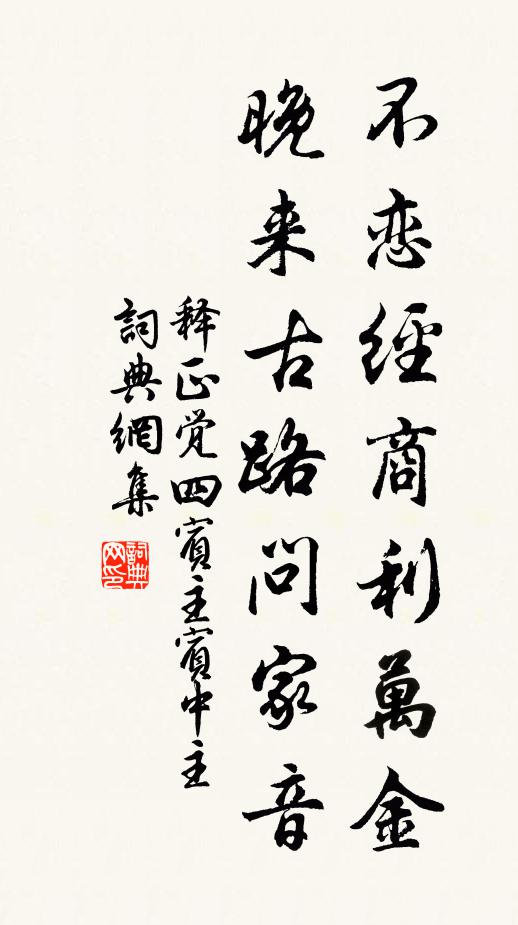 不恋經商利萬金
晚来古路問家音
释正觉四賓主賓中主
詞典網集
詞典网印